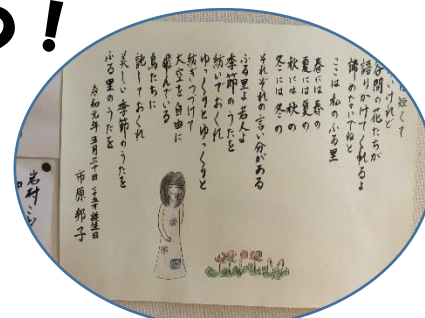 ！
短くて
いけれど
谷間の花たちが
語りかけてくれるよ
諦めないでねと
ここは私のふる里
春には春の
夏には夏の
秋には秋の
冬には冬の
それぞれの言い分がある
ふる里よ若人よ
季節のうたを
紡いでおくれ
ゆっくりとゆっくりと
紡ぎつづけて
大空を自由に
飛んでいる
鳥たちに
託しておくれ
美しい季節のうたを
ふる里のうたを
令和元年五月三十日 誕生日
市原邦子
岩村